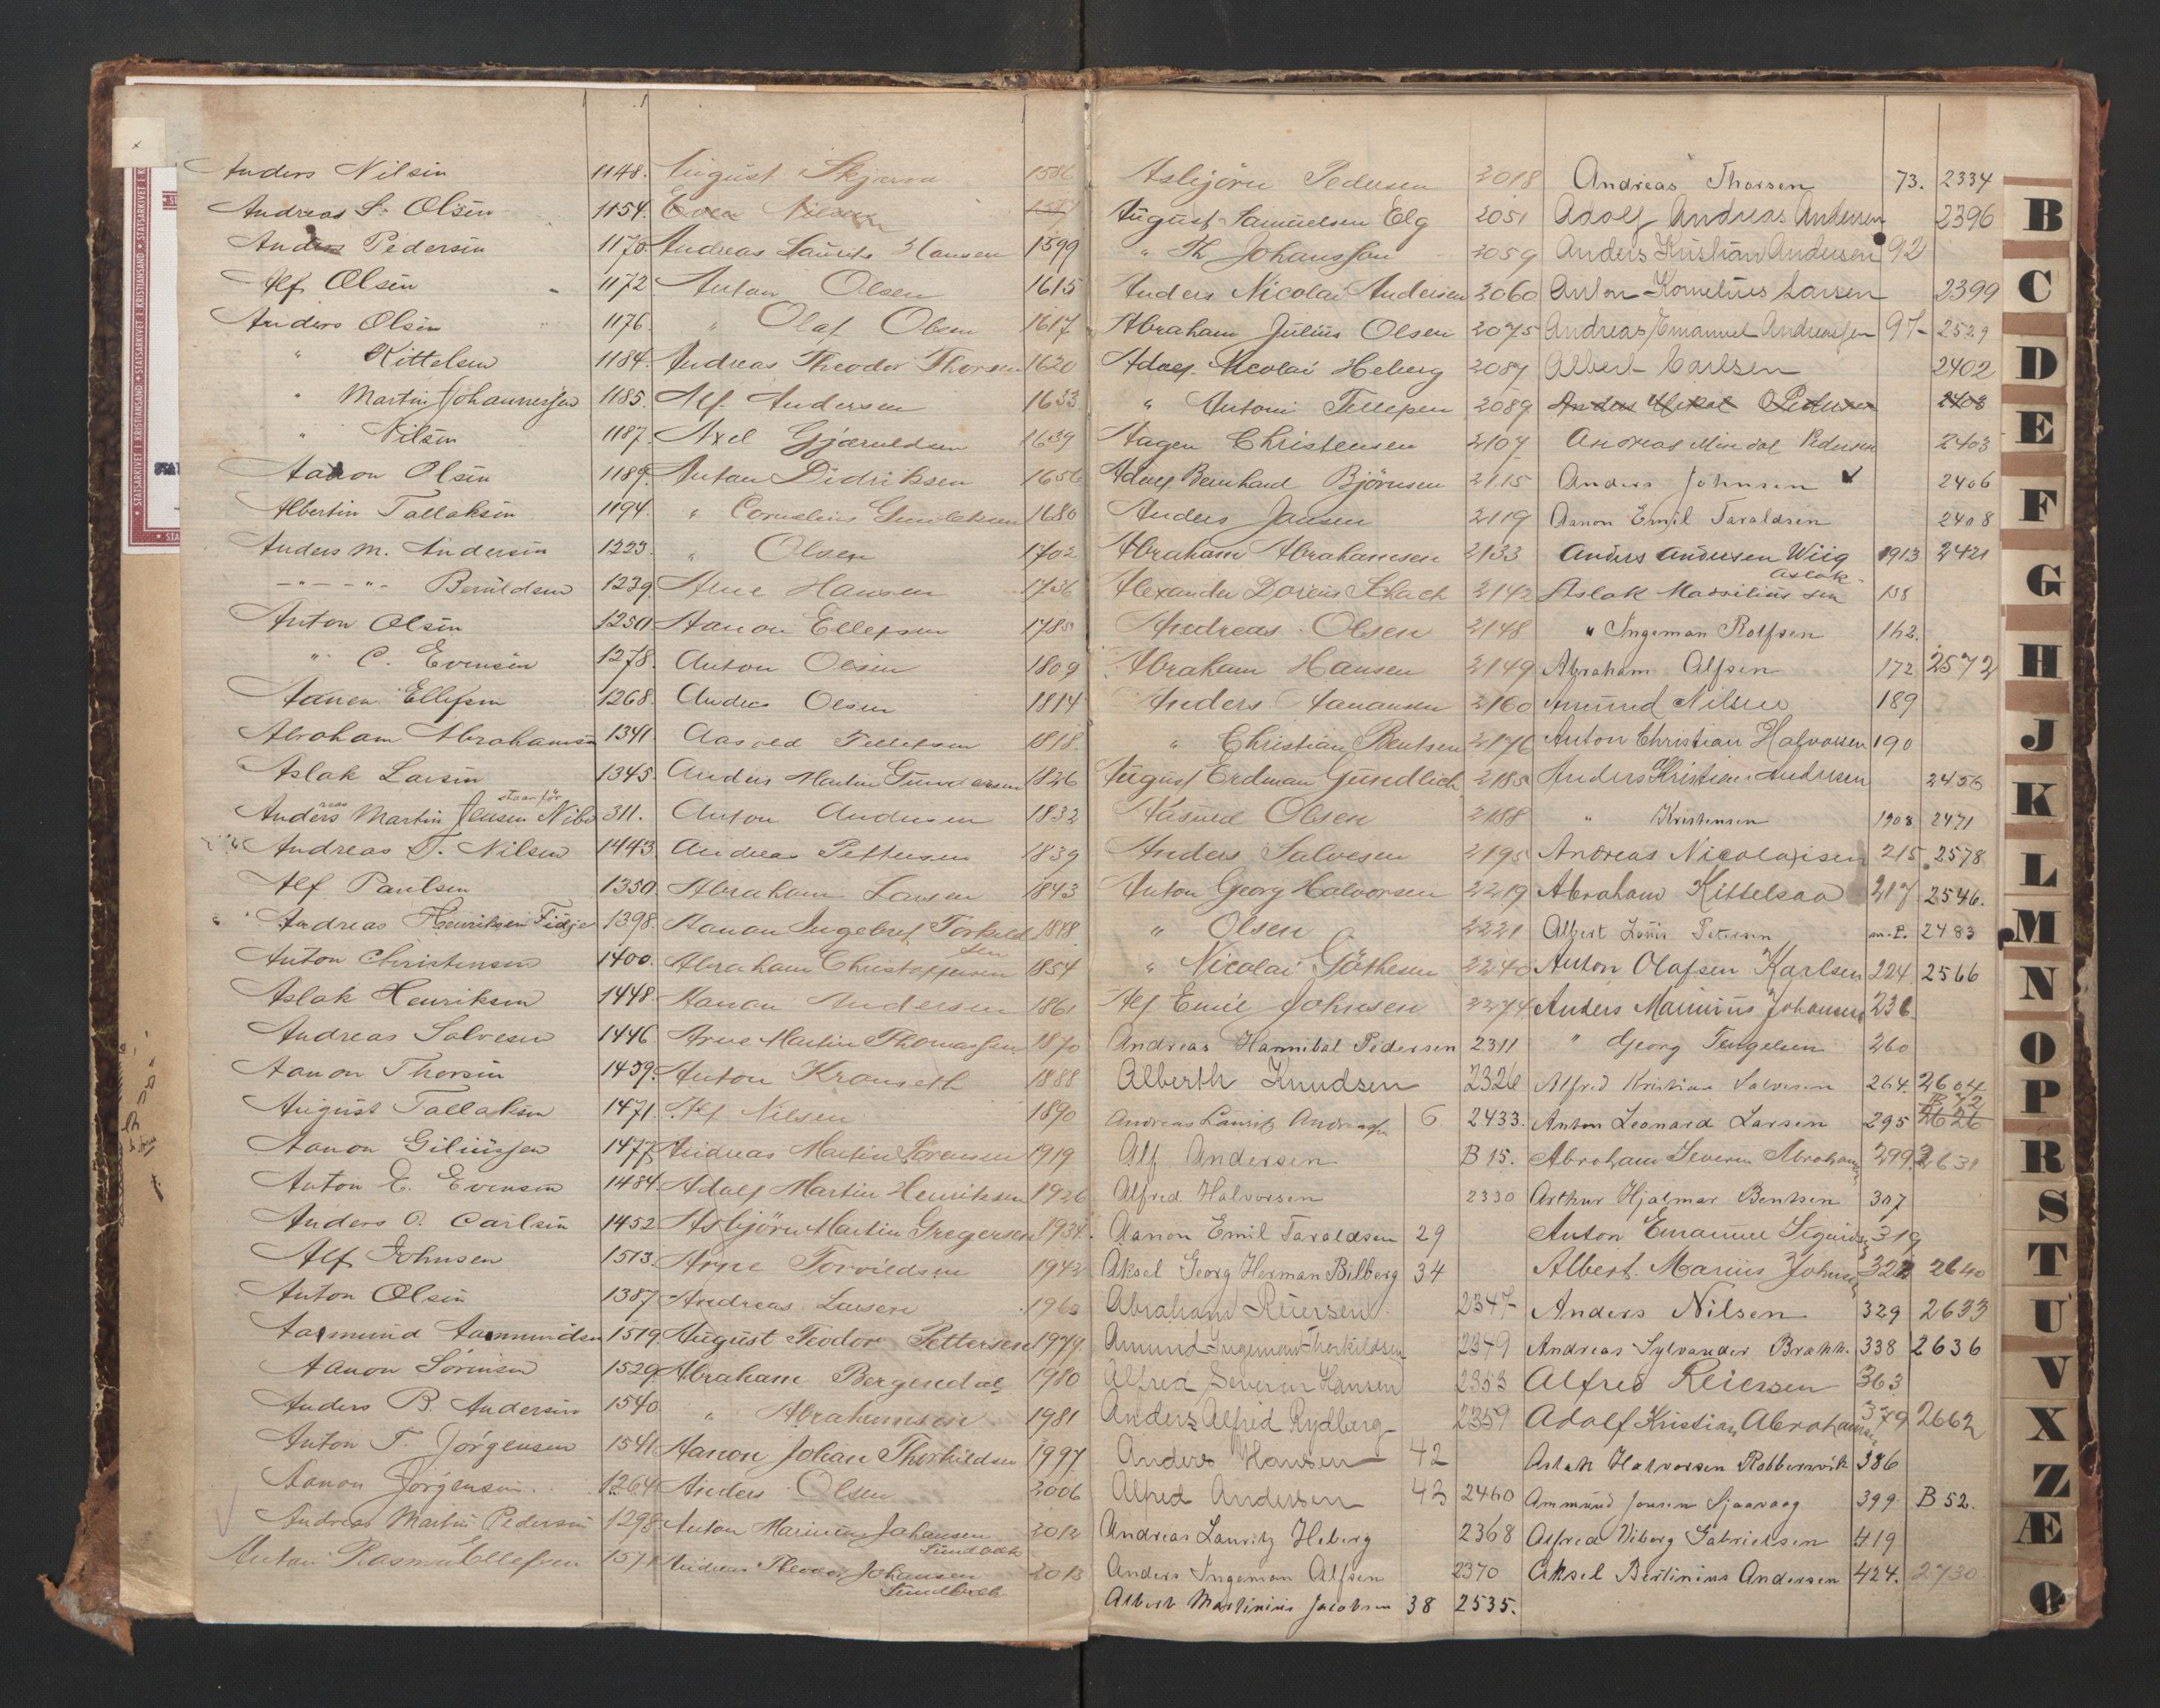 Anders Nilsen 1148.
Andreas S. Olsen 1154.
Anders Pedersen 1170
Alf Olsen 1172
Anders Olsen 1176.
" Kittelsen 1184.
" Martin Johannessen 1185.
" Nilsen 1187.
Aanon Olsen 1189.
Albertin Tallaksen 1194.
Anders M. Andersen 1223.
-"- -"- Beruldsen 1239
Anton Olsen 1250
" C. Evensen 1278.
Aanen Ellefsen 1268.
Abraham Abrahamsen 1341.
Aslak Larsen 1345.
Anders Martin Jensen 311.
Andreas T. Nilsen 1443
Alf Paulsen 1350
Andreas Henriksen Fidje 1398.
Anton Christensen 1400.
Aslak Henriksen 1448.
Andreas Salvesen 1446
Aanon Thorsen 1459.
August Tallaksen 1471.
Aanon 1477
Anton E. Evensen 1484.
Anders O. Carlsen 1452
Alf Johnsen 1513.
Anton Olsen 1387
Aasmund Aasmundsen 1519.
Aanon Sörensen 1529
Anders B. Andersen 1540
Anton T. Jörgensen 1541
Aanon Jörgensen 1264
Andreas Martin Pedersen 1298
Anton Rasmus Ellefsen
August Skjerva 1586
Andreas Laurits Hansen 1599
Anton Olsen 1615
" Olaf Olsen 1617.
Andreas Theodor Thorsen 1620
Alf Andersen 1633
Axel Gjæruldsen 1639
Anton Didriksen 1656
" Cornelius 1680
" Olsen 1702
Arne Hansen 1736
Aanon Ellefsen 1785
Anton Olsen 1809
Anders Olsen 1814
Tellefsen 1818.
Anders Martin Gundersen 1826
Anton Andersen 1832
Andreas Pettersen 1839
Abraham Larsen 1843
Aanon Ingebret Torkild
sen
Abraham Christoffersen 1854
Aanon Andersen 1861
Arne Martin Thomassen 1870
Anton Kranseth 1888
Alf Nilsen 1890
Andreas Martin Sörensen 1919
Adolf Martin Henriksen 1926
Asbjörn Martin Gregersen 1934.
Arne Torvildsen 1942
Andreas Larsen 1960
August Teodor Pettersen 1974.
Abraham Bergendal 1980
" Abrahamsen 1981
Aanon Johan Thorkildsen 1997
Anders Olsen 2006
Anton Marinius Johansen 2012
Sundbäck
Andreas Theodor Johansen 2013
Sundbeck
Asbjörn Pedersen 2018
August Samuelsen Elg 2051
" Th Johansson 2059
Anders Nicolai Andersen 2060
Abraham Julius Olsen 2075
Adolf Nicolai Heberg 2087
" Antoni Tellefsen 2089
Aagen Christensen 2107
Adolf Bernhard Björnsen 2115
Anders Jansen 2119
Abraham Abrahamsen 2133
Alexander Schach 2142
Andreas Olsen 2148
Abraham Hansen 2149
Anders Aanonsen 2160
" Christian Bentsen 2176
August Erdman Gundlich 2185
Aasmund Olsen 2188
Anders Salvesen 2195
Anton Georg Halvorsen 2219
" Olsen 2221
" Nicolai Göthesen 2240
Alf Emil Johnsen 2274
Andreas Hannibal Pedersen 2311
Alberth Knudsen 2326
Andreas Lauritz Andreassen 6 2433.
Alf Andersen B 15.
Alfred Halvorsen 2330
Aanon Emil Taraldsen 29
Aksel Georg Herman Bilberg 34
Abraham Reiersen 2347
Amund Ingeman Thorkildsen 2349
Alfred Severin Hansen 2353
Anders Alfred Rydberg 2359
Anders Hansen 42
Alfred Andersen 43 2460
Andreas Lauritz Heberg 2368
Anders Ingeman Alfsen 2370
Albert Martinius Jacobsen 38 2535.
Andreas Thorsen 73. 2334
Adolf Andreas Andersen 2396
Anders Kristian Andersen 92
Anton Kornelius Larsen 2399
Andreas Emanuel Andreassen 97 2529
Albert Carlsen 2402
Anders Mikal Pedersen 2403
Andreas Mindal Pedersen 2403
Anders Johnsen 2406
Aanon Emil Taraldsen 2408
Anders Andersen Wiig 1913 2421
Aslak
Aslak 138
" Ingeman Rolfsen 162.
Abraham Alfsen 172 2572
Amund Nilsen 189
Anton Christian Halvorsen 190
Anders Kristian Andersen 2456
" Kristensen 1908 2471
Andreas Nicolaisen 215 2578
Abraham Kittelsaa 217 2546.
Albert Louis Petersen m.P. 2483
Anton Olafsen Karlsen 224 2566
Anders Marinius Johansen 236.
" Georg Tengelsen 260
Alfred Kristian Salvesen 264. 2604
B 72
Anton Leonard Larsen 295 2626
Abraham Severin Abrahamsen 299 2631
Arthur Hjalmar Bentsen 307
Anton Emanuel Sigurdsen 319
Albert Marius Johnsen 322 2640
Anders Nilsen 329 2633
Andreas Sylvander Brakk. 338 2636
Alfred Reiersen 363
Adolf Kristian Abrahamsen 379 2662
Aslak Halvorsen Robbersvik 386
Ammund Jensen Sjaavaag 399 B 52.
Alfred Viborg Gabrielsen 419
Aksel Bertinius Andersen 424. 2730
B
C
D
E
F
G
H
J
K
L
M
N
O
P
R
S
T
U
V
X
Z
Æ
Ø